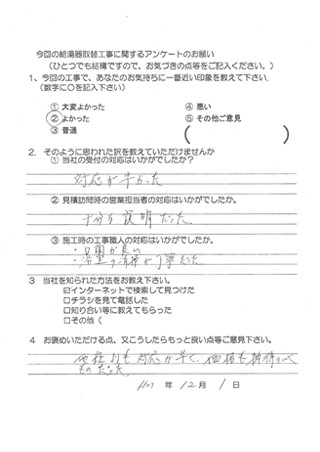 今回の給湯器取替工事に関するアンケートのお願い
（ひとつでも結構ですので、お気づきの点等をご記入ください。）
1、今回の工事で、あなたのお気持ちに一番近い印象を教えて下さい。
（数字に○を記入下さい）
① 大変よかった ④ 悪い
② よかった ⑤ その他ご意見
③ 普通 （ ）
2．そのように思われた訳を教えていただけませんか
① 当社の受付の対応はいかがでしたか？
対応が早かった
② 見積訪問時の営業担当者の対応はいかがでしたか。
十分な説明だった
③ 施工時の工事職人の対応はいかがでしたか？
・ が良い
・浴室の清掃が丁寧だった
3 当社を知られた方法をお教え下さい。
☑インターネットで検索して見つけた
□チラシを見て電話した
□知り合い等に教えてもらった
□その他（
4 お褒めいただける点、又こうしたらもっと良い点等ご意見下さい。
他社よりも対応が早く、価格も
ものだった。
年 12月 1日